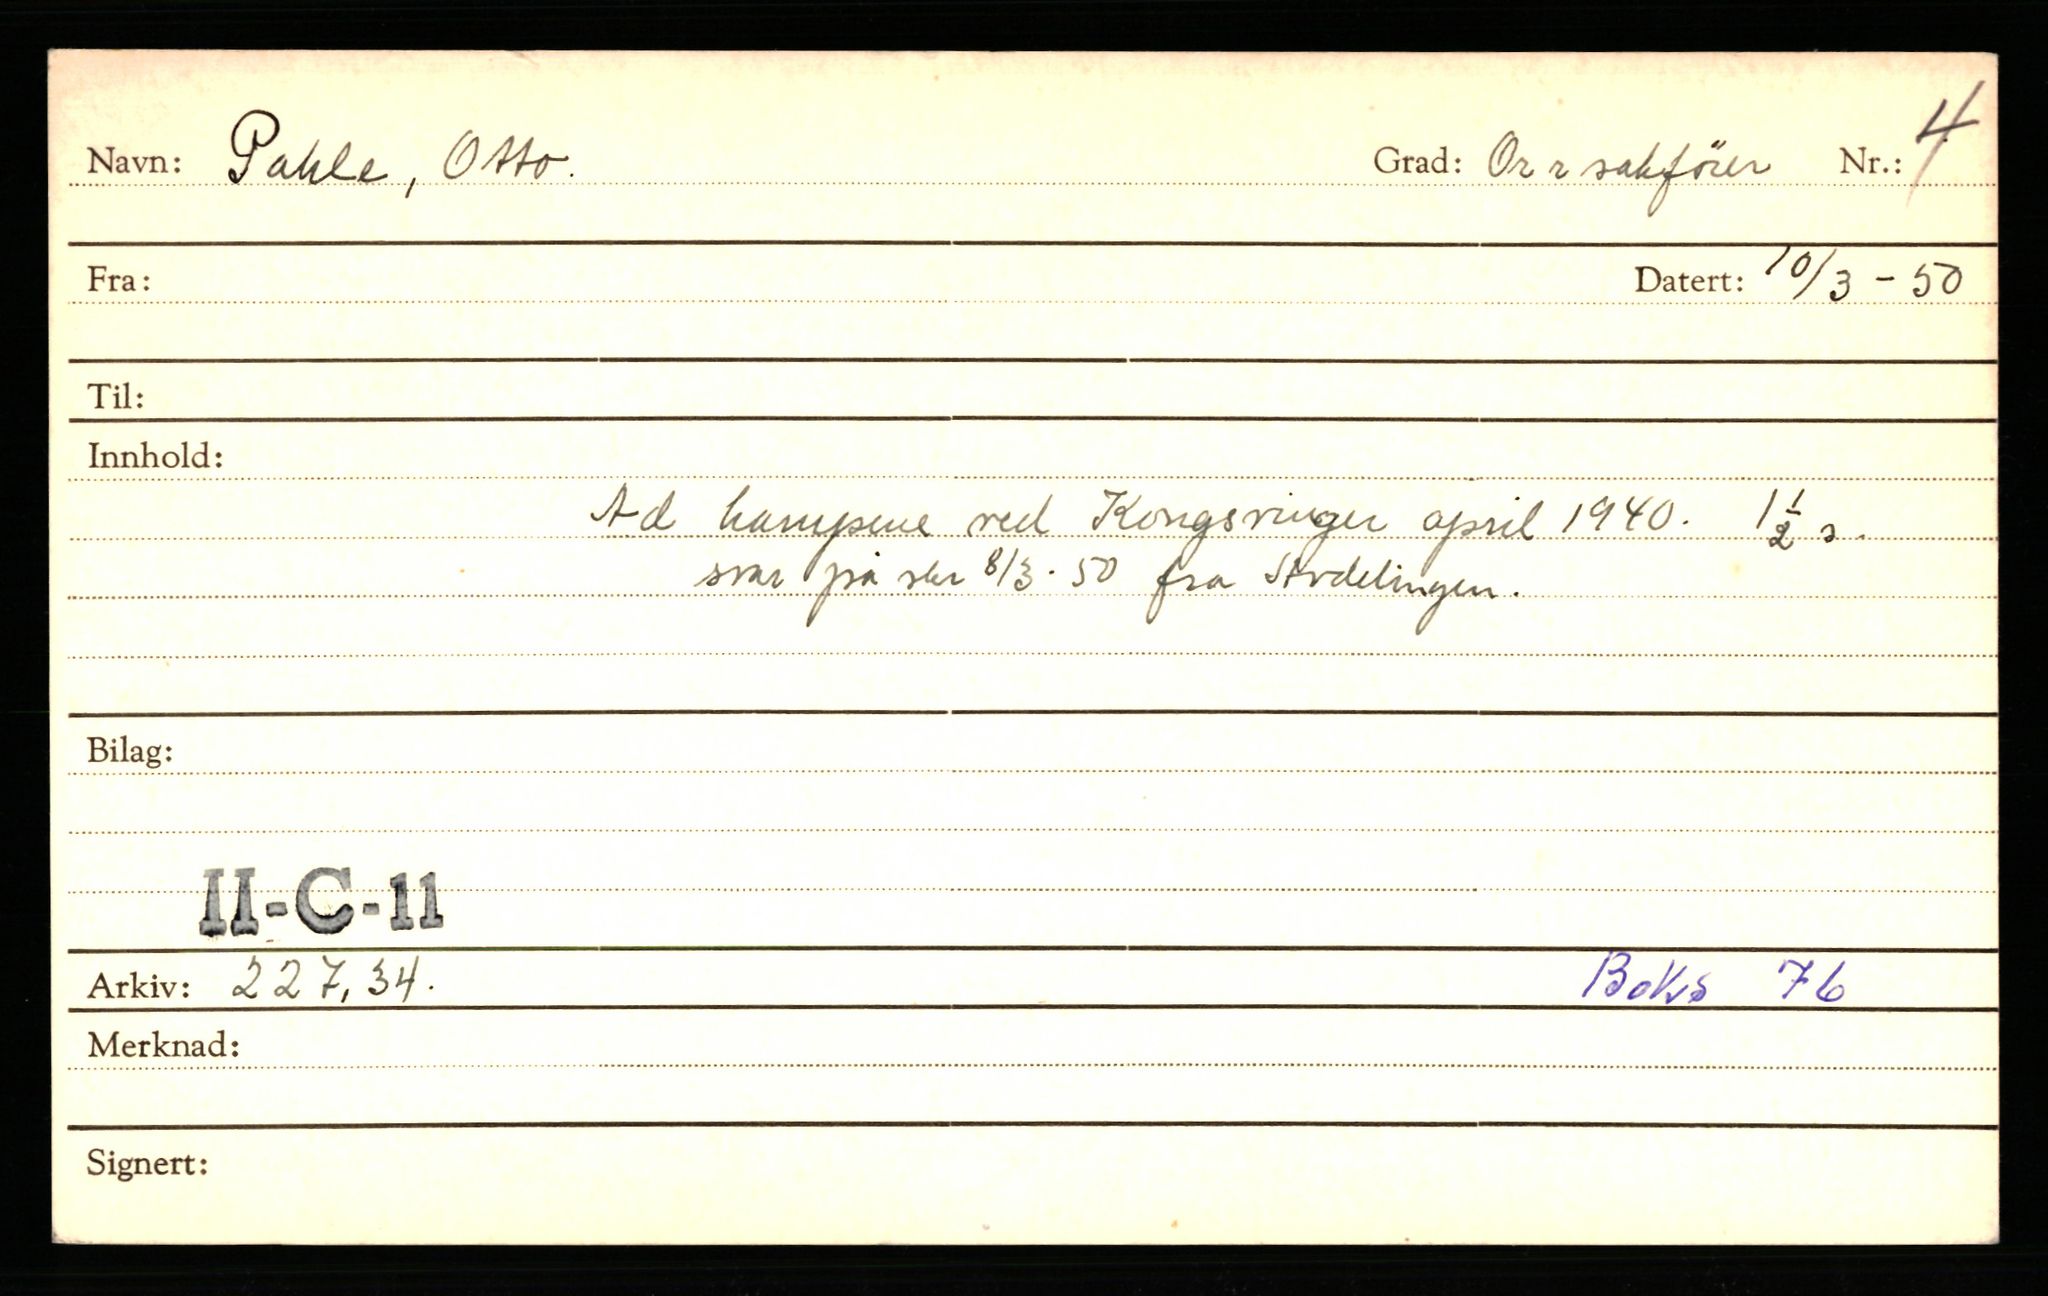 Navn: Pahle, Otto. Grad: Or r sakfører Nr.: 4
Fra: Datert: 10/3 - 50
Til:
Innhold:
Ad kampene ved Kongsvinger april 1940. 1 1/2 s.
svar på skr 8/3. 50 fra Avdelingen.
Bilag:
II-C-11
Arkiv: 227,34. Boks 76
Merknad:
Signert: